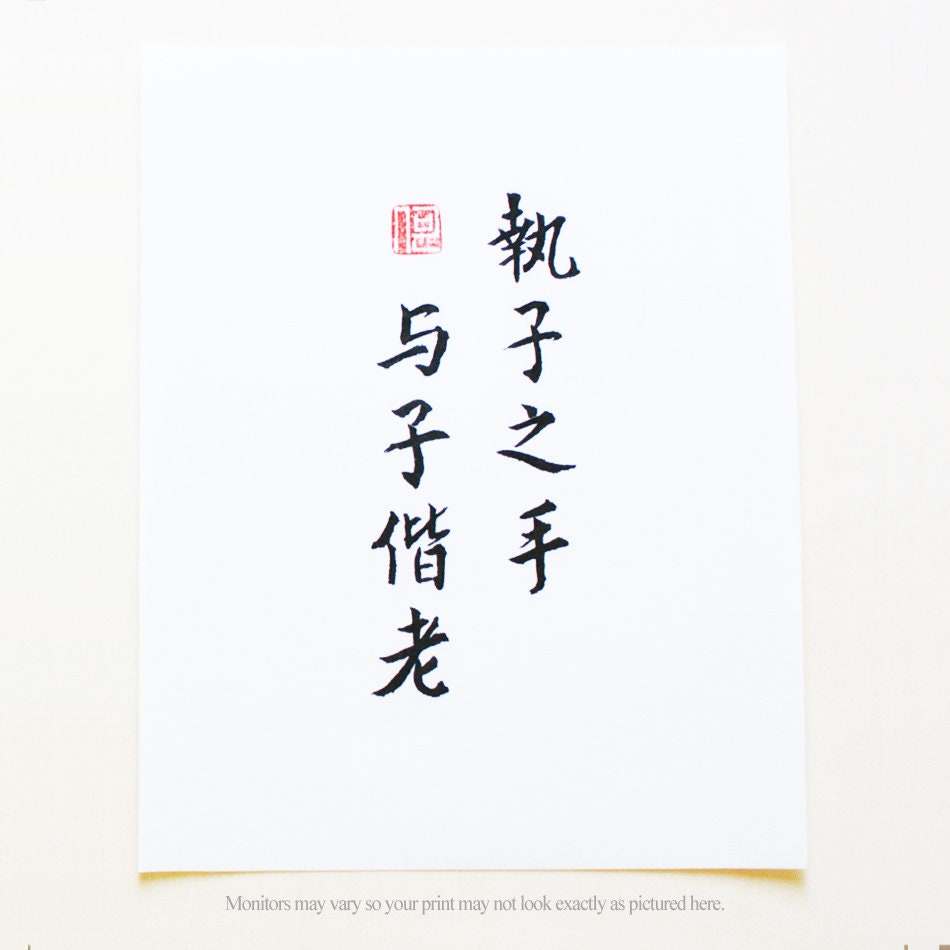 執子之手
与子偕老
Monitors may vary so your print may not look exactly as pictured here.